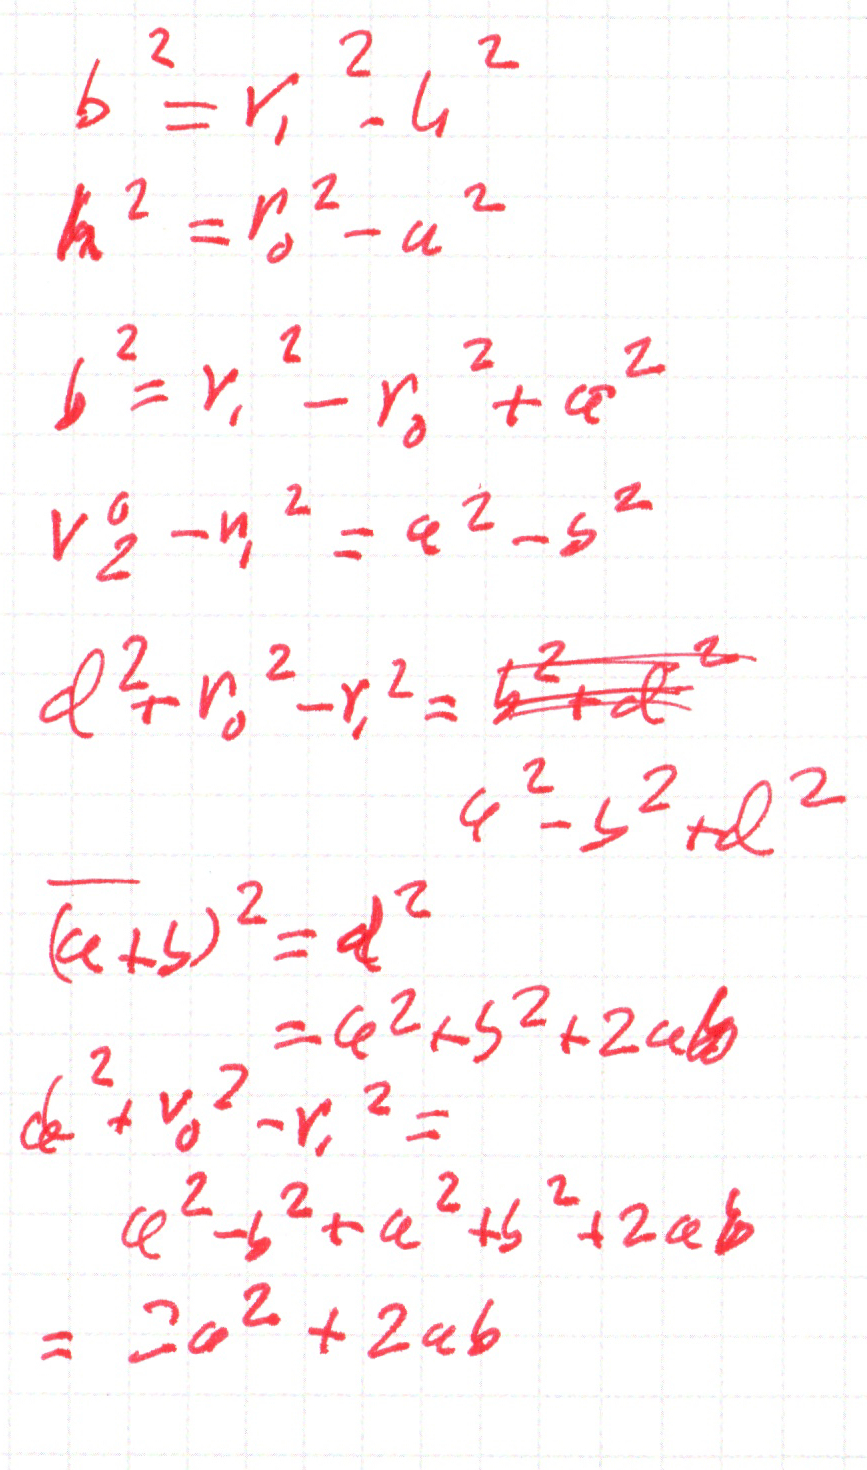 b² = r₁² - h²
h² = r₀² - a²
b² = r₁² - r₀² + a²
r₂⁰ - r₁² = a² - b²
d² + r₀² - r₁² = b² + d²
a² - b² + d²
(a+b)² = d²
= a² + b² + 2ab
d² + r₀² - r₁² =
a² - b² + a² + b² + 2ab
= 2a² + 2ab